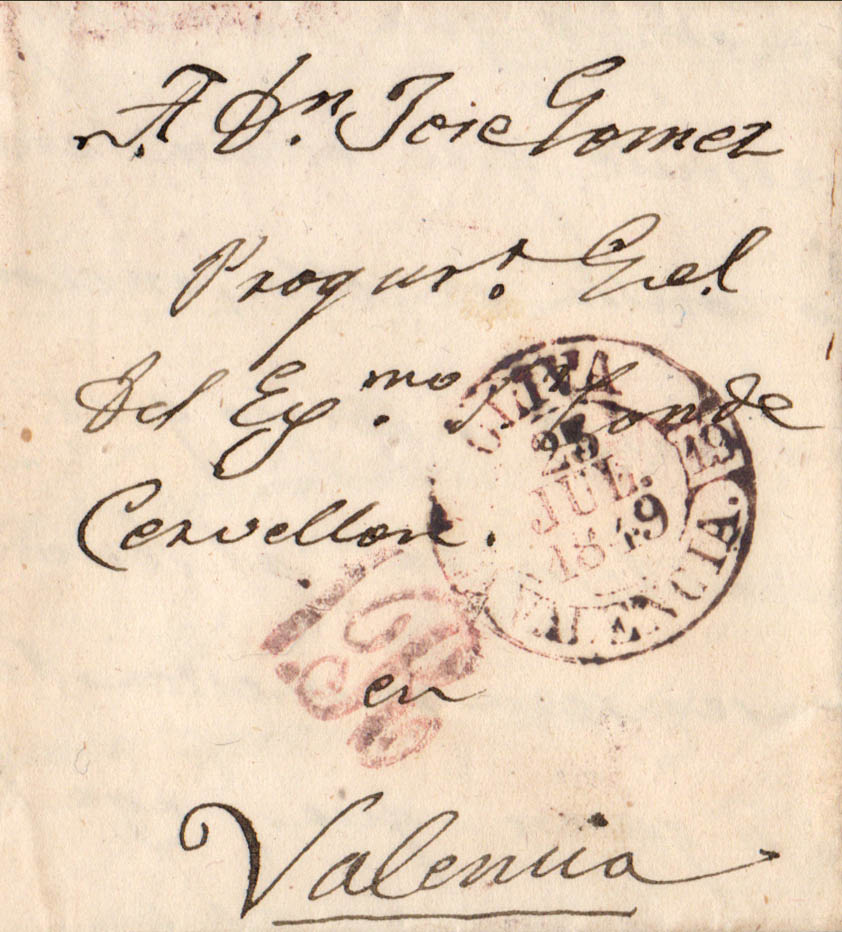 A Dn. Jose Gomez
Procur.r Gel.
Del Exmo. Sr. Conde
Cervellon.
en
Valencia
OLIVA
25
JUL.
1849
19
VALENCIA.
1R